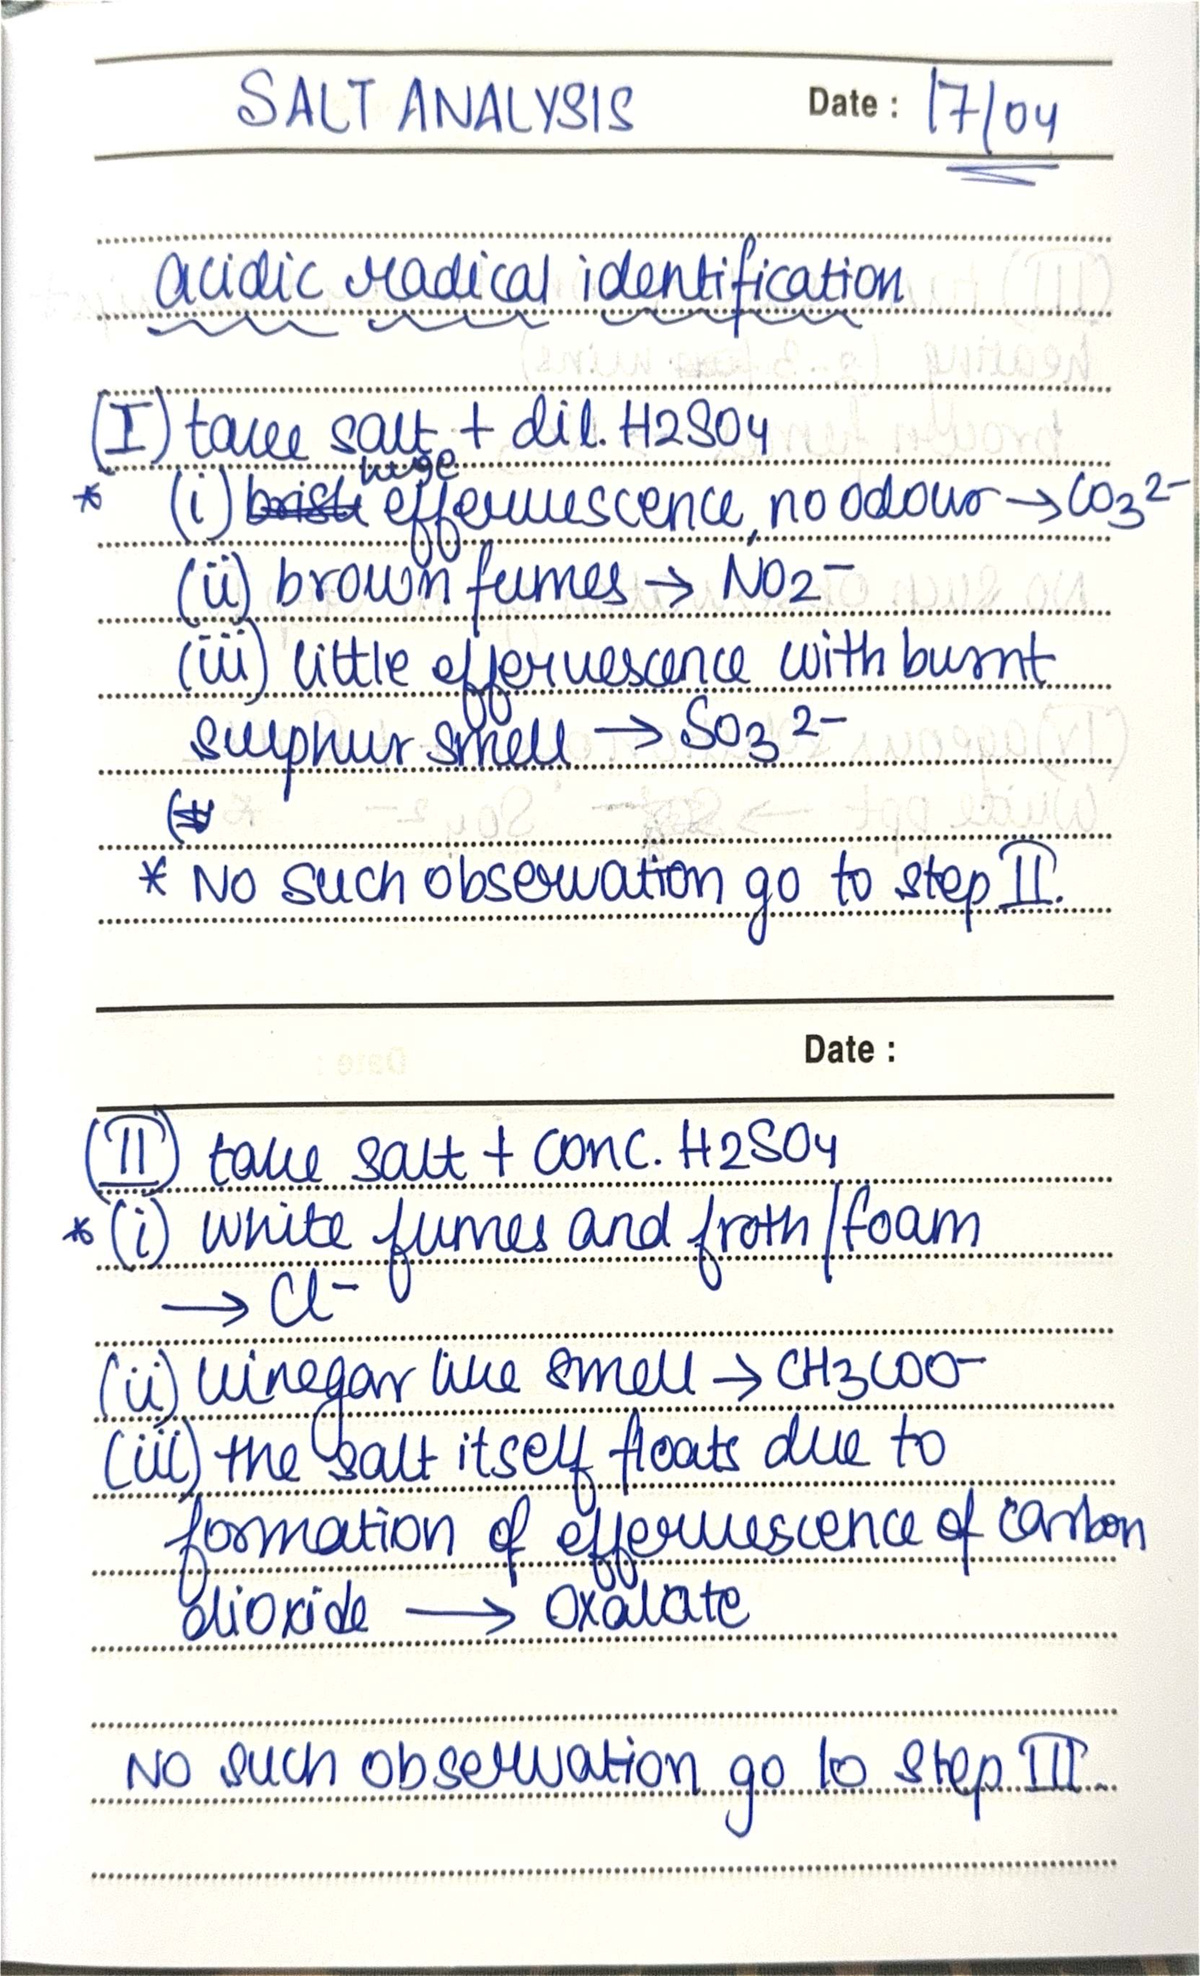 SALT ANALYSIS Date : 17/04
acidic radical identification
(I) take salt + dil. H2SO4
huge
* (i) brisk effervescence, no odour → CO3 2-
(ii) brown fumes → NO2-
(iii) little effervescence with burnt
sulphur smell → SO3 2-
* No such observation go to step II.
Date :
(II) take salt + conc. H2SO4
* (i) white fumes and froth/foam
→ Cl-
(ii) vinegar like smell → CH3COO-
(iii) the salt itself floats due to
formation of effervescence of carbon
dioxide → oxalate
No such observation go to step III.